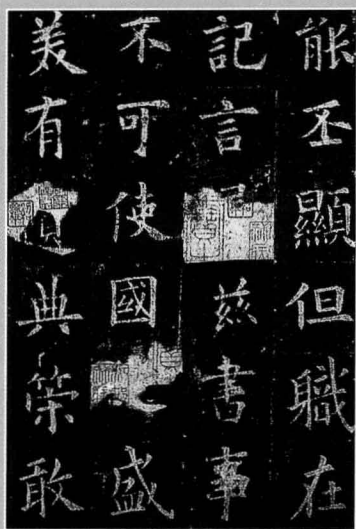 能丕顯但職在
記言茲書事
不可使國盛
美有典策敢